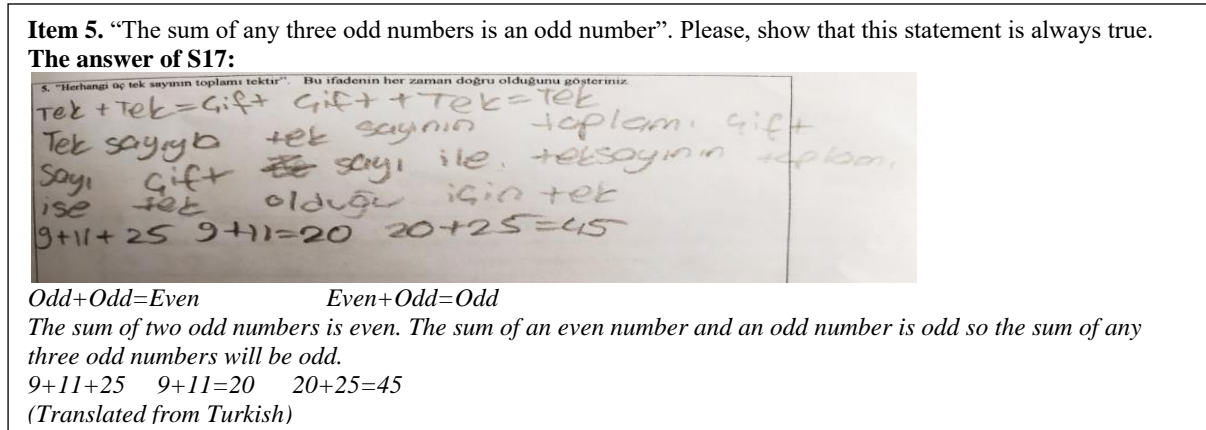 Item 5. “The sum of any three odd numbers is an odd number”. Please, show that this statement is always true.
The answer of S17:
5. "Herhangi üç tek sayının toplamı tektir". Bu ifadenin her zaman doğru olduğunu gösteriniz.
Tek + Tek = Çift Çift + Tek = Tek
Tek sayıyla tek sayının toplamı çift
Sayı çift sayı ile teksayının toplamı
ise tek olduğu için tek
9+11+25 9+11=20 20+25=45
Odd+Odd=Even Even+Odd=Odd
The sum of two odd numbers is even. The sum of an even number and an odd number is odd so the sum of any
three odd numbers will be odd.
9+11+25 9+11=20 20+25=45
(Translated from Turkish)